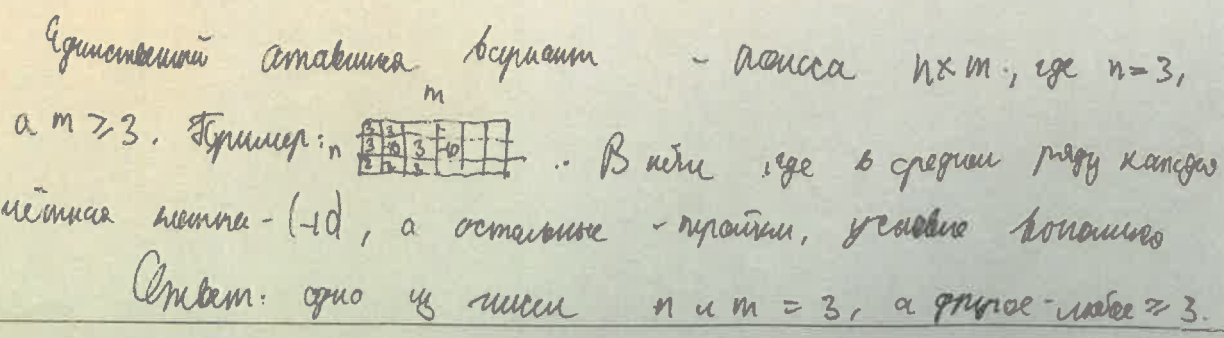 Единственный оставшийся вариант - полоса n×m, где n=3,
m
а m ≥ 3. Пример: n 3 3 3 -10 3 -10 3 3 3 .. В ней, где в среднем ряду каждая
чётная клетка - (-10), а остальные - тройки, условие выполнено
Ответ: одно из чисел n и m = 3, а другое - любое ≥ 3.